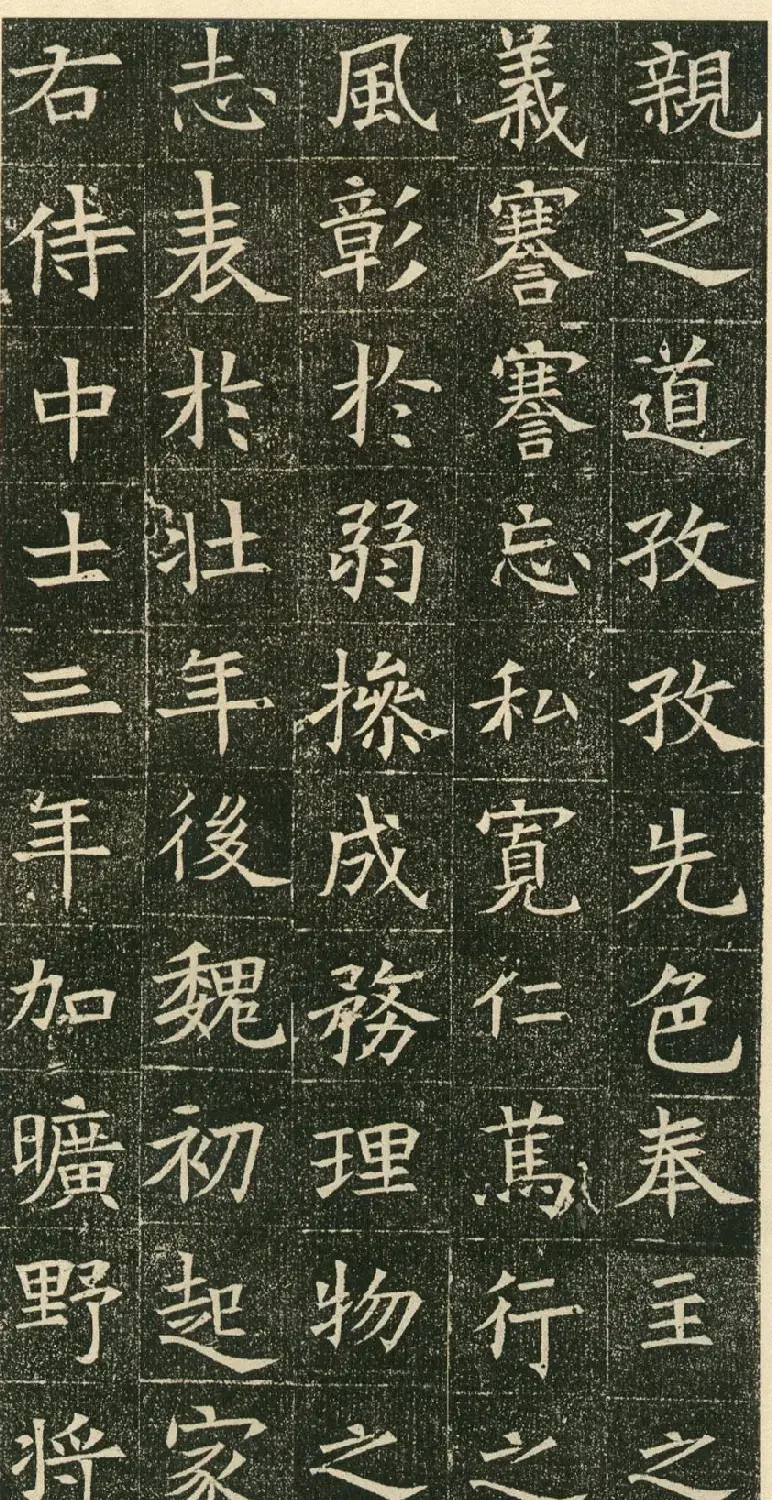 親之道孜孜先色奉主之
義謇謇忘私寬仁篤行之
風彰於弱操成務理物之
志表於壯年後魏初起家
右侍中士三年加曠野将